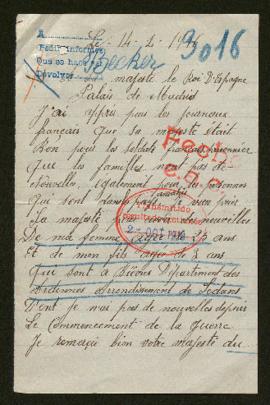 A
Pedir informes
Que se haga
Devolver
Le 14-2-1916
3016
Becker
majesté le Roi D'Espagne
Palais de Madrid
J'ai appris par les journeaux
français que Sa majesté était
Bon pour les soldats français prisonnier
Que les familles n'ont pas de
Nouvelle, également pour les personnes
qui sont
La majesté nouvelles
De ma femme agée de 25 ans
Et de mon fils agée de 2 ans
Qui sont à Département des
Ardennes arrondissement de Sedans
Dont je n'ai pas de nouvelles depuis
Le Commencement de la Guerre
Je remerçi bien votre majesté du